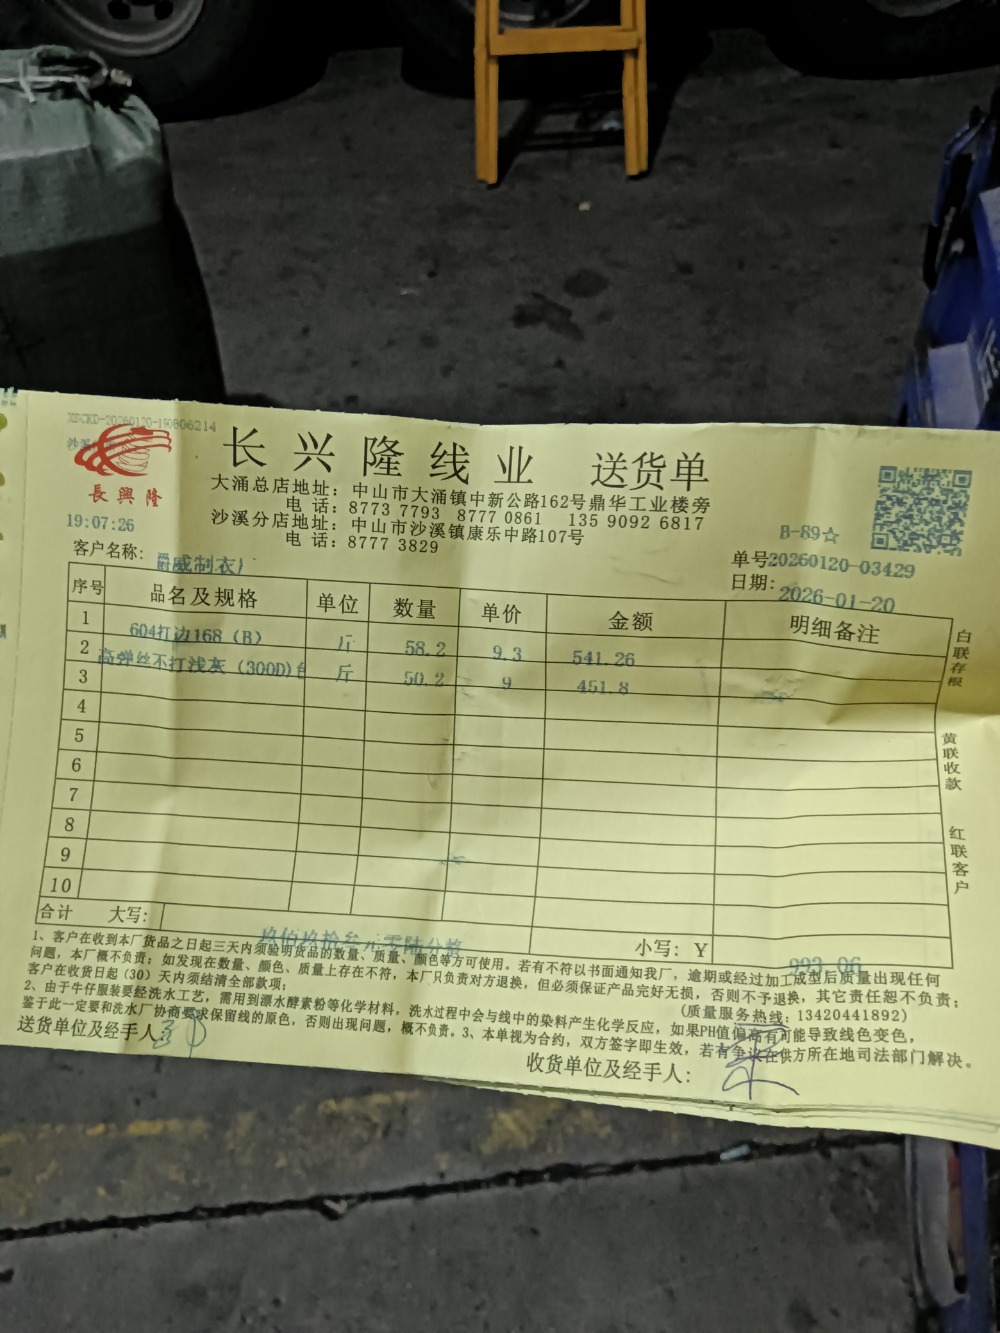 XSCKD-20260120-190806214
長興隆
长兴隆线业 送货单
大涌总店地址：中山市大涌镇中新公路162号鼎华工业楼旁
电 话：8773 7793 8777 0861 135 9092 6817
沙溪分店地址：中山市沙溪镇康乐中路107号
电 话：8777 3829
19:07:26
B-89☆
客户名称：爵威制衣厂
单号20260120-03429
日期：2026-01-20
序号 品名及规格 单位 数量 单价 金额 明细备注
1 604打边168（B） 斤 58.2 9.3 541.26
2 高弹丝不打浅灰（300D） 斤 50.2 9 451.8
3
4
5
6
7
8
9
10
合计 大写：玖佰玖拾叁元零陆分整 小写：Y 993.06
白联存根 黄联收款 红联客户
1、客户在收到本厂货品之日起三天内须验明货品的数量、质量、颜色等方可使用。若有不符以书面通知我厂，逾期或经过加工成型后质量出现任何
问题，本厂概不负责；如发现在数量、颜色、质量上存在不符，本厂只负责对方退换，但必须保证产品完好无损，否则不予退换，其它责任恕不负责；
客户在收货日起（30）天内须结清全部款项；
(质量服务热线：13420441892)
2、由于牛仔服装要经洗水工艺，需用到漂水酵素粉等化学材料，洗水过程中会与线中的染料产生化学反应，如果PH值偏高有可能导致线色变色，
鉴于此一定要和洗水厂协商要求保留线的原色，否则出现问题，概不负责。3、本单视为合约，双方签字即生效，若有争议在供方所在地司法部门解决。
送货单位及经手人：
收货单位及经手人：